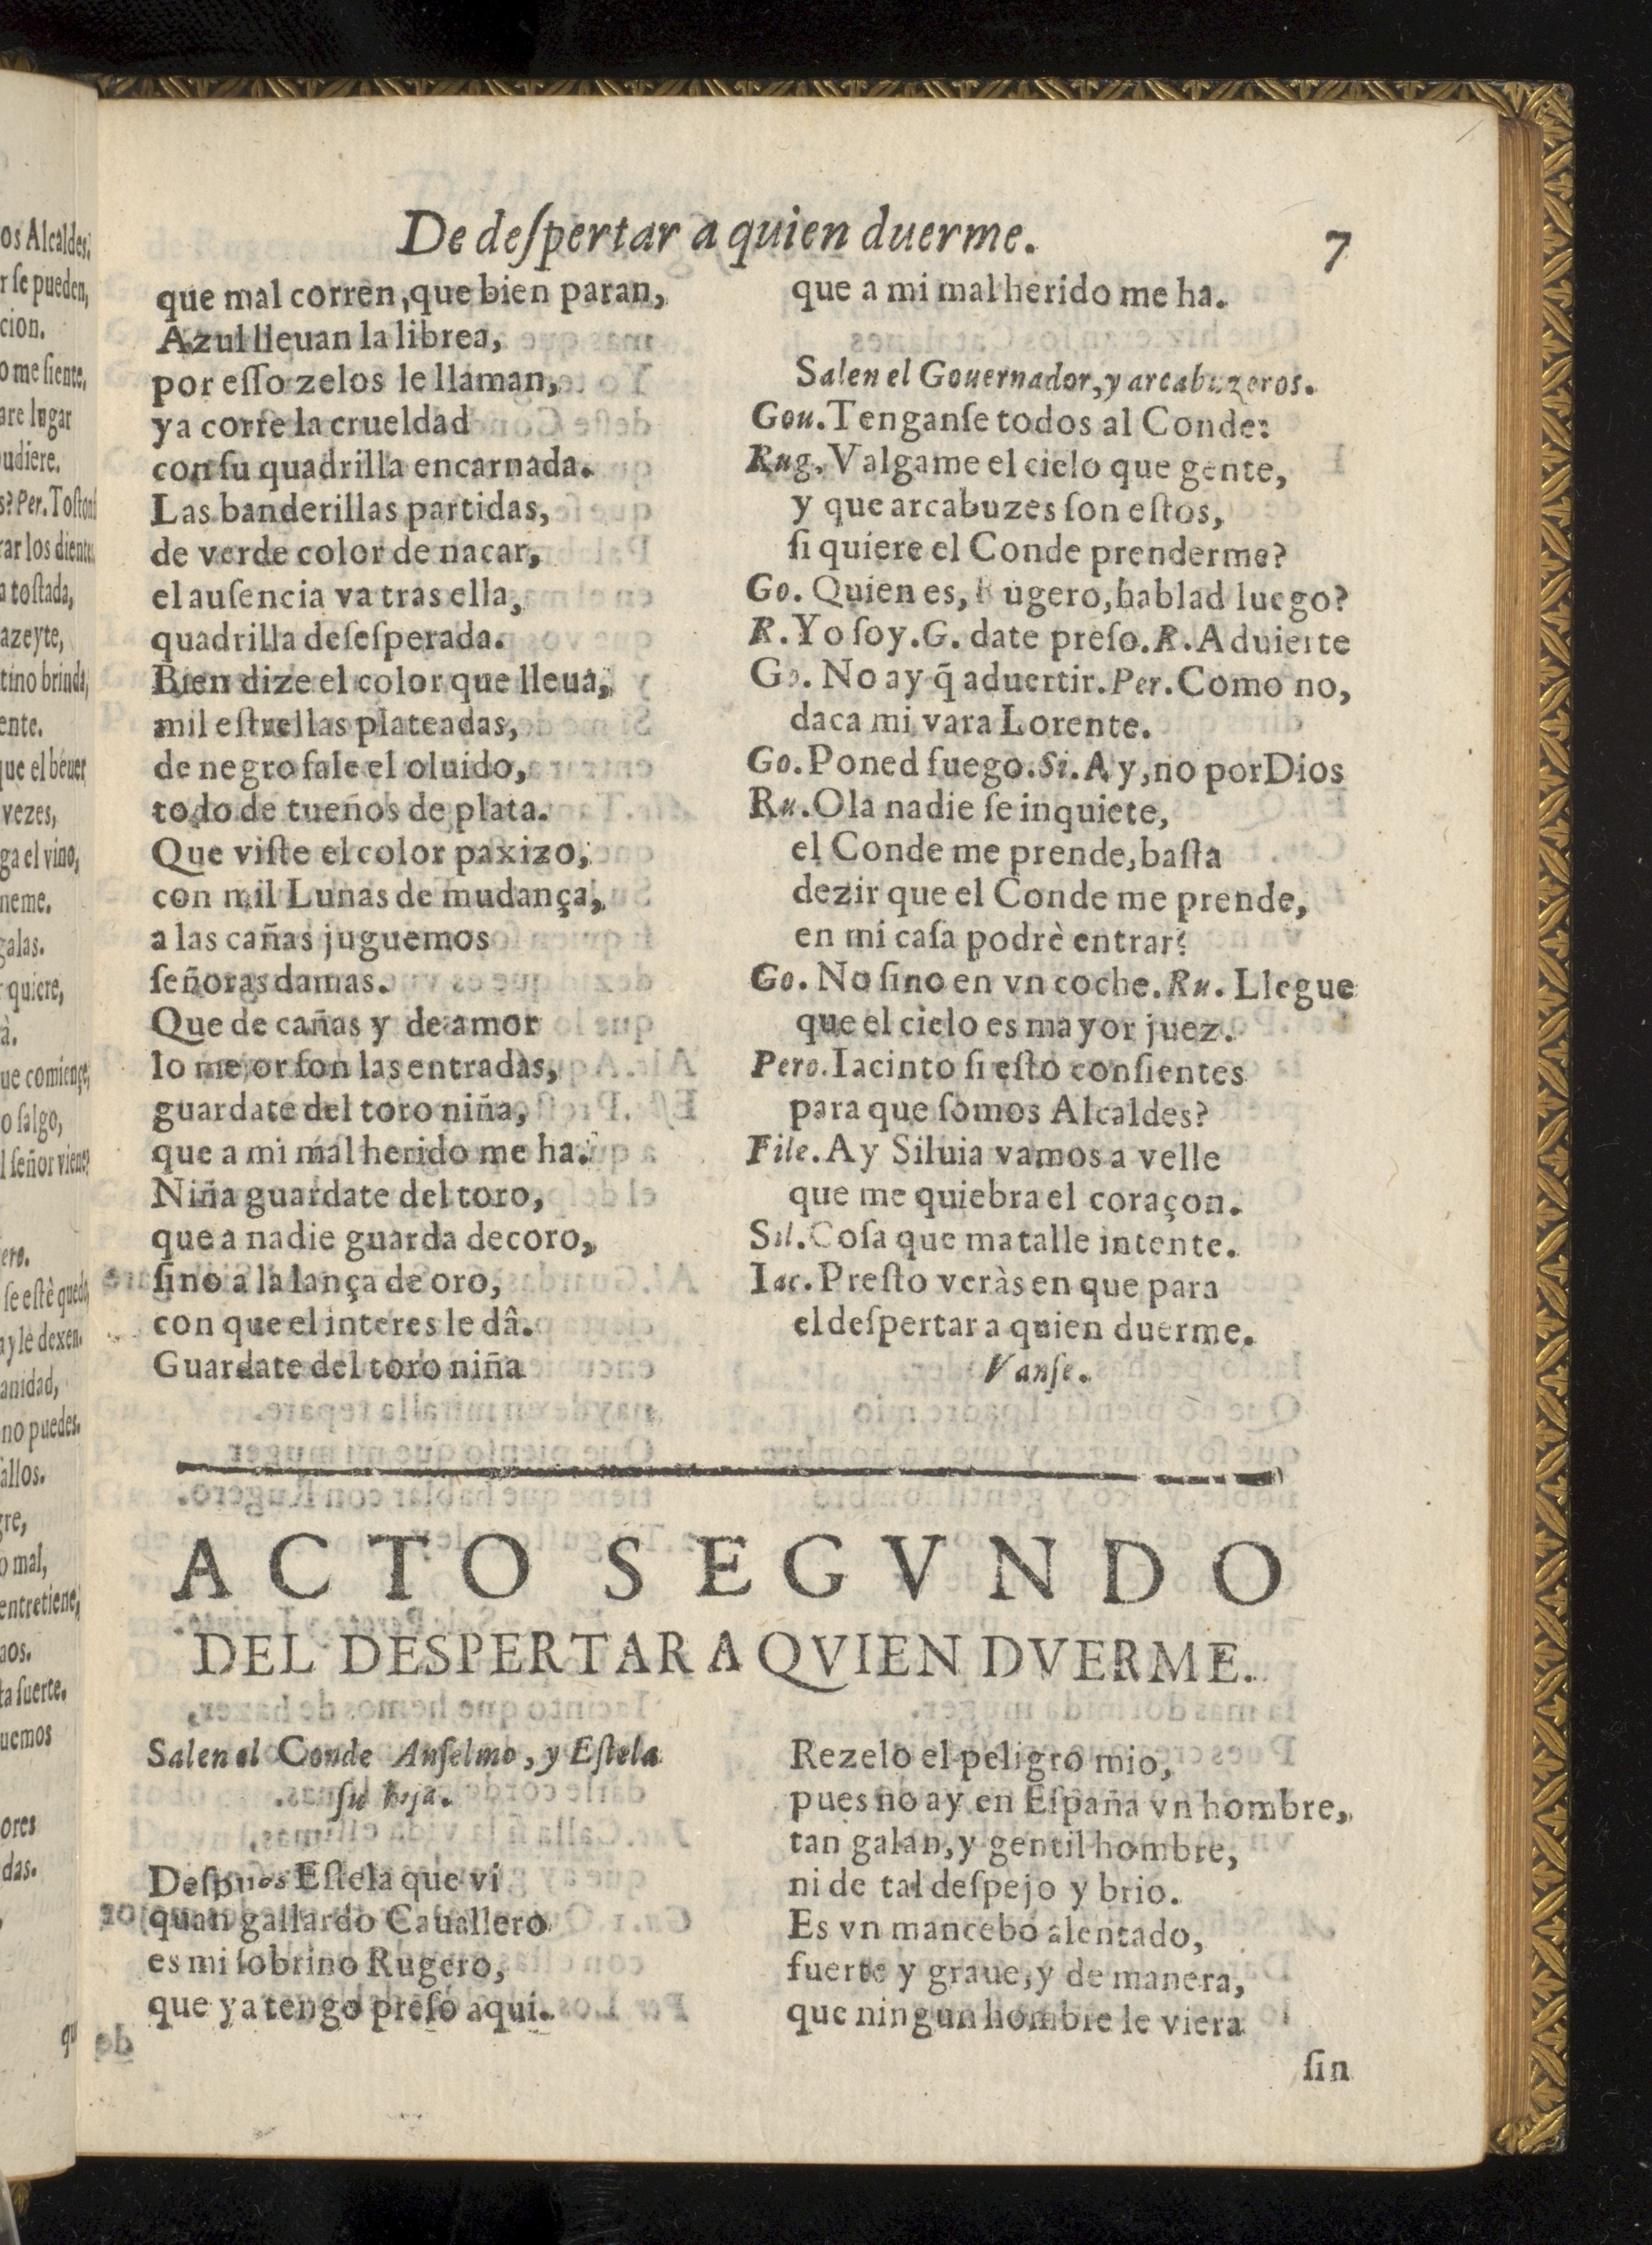 De deſpertar a quien duerme.
7
que mal corren, que bien paran,
Azul lleuan la librea,
por eſſo zelos le llaman,
ya corre la crueldad
con ſu quadrilla encarnada.
Las banderillas partidas,
de verde color de nacar,
el auſencia va tras ella,
quadrilla deſeſperada.
Bien dize el color que lleua,
mil eſtrellas plateadas,
de negro ſale el oluido,
todo de tueños de plata.
Que viſte el color paxizo,
con mil Lunas de mudança,
a las cañas juguemos
ſeñoras damas.
Que de cañas y de amor
lo me or ſon las entradas,
guardate del toro niña,
que a mi mal herido me ha.
Niña guardate del toro,
que a nadie guarda decoro,
ſino a la lança de oro,
con que el interes le dâ.
Guardate del toro niña
que a mi mal herido me ha.
Salen el Gouernador, y arcabuzeros.
Gou. Tenganſe todos al Conde:
Rug. Valgame el cielo que gente,
y que arcabuzes ſon eſtos,
ſi quiere el Conde prenderme?
Go. Quien es, Rugero, hablad luego?
R. Yo ſoy. G. date preſo. R. Aduierte
Go. No ay q̃ aduertir. Per. Como no,
daca mi vara Lorente.
Go. Poned fuego. Si. Ay, no por Dios
Ru. Ola nadie ſe inquiete,
el Conde me prende, baſta
dezir que el Conde me prende,
en mi caſa podrè entrar?
Go. No ſino en vn coche. Ru. Llegue
que el cielo es mayor juez.
Pero. Iacinto ſi eſto conſientes
para que ſomos Alcaldes?
File. Ay Siluia vamos a velle
que me quiebra el coraçon.
Sil. Coſa que matalle intente.
Iac. Preſto veràs en que para
el deſpertar a quien duerme.
Vanſe.
ACTO SEGVNDO
DEL DESPERTAR A QVIEN DVERME.
Salen el Conde Anſelmo, y Eſtela
ſu hija.
Deſpues Eſtela que vi
quan gallardo Cauallero
es mi ſobrino Rugero,
que ya tengo preſo aqui.
Rezelo el peligro mio,
pues no ay en Eſpaña vn hombre,
tan galan, y gentil hombre,
ni de tal deſpejo y brio.
Es vn mancebo alentado,
fuerte y graue, y de manera,
que ningun hombre le viera
ſin